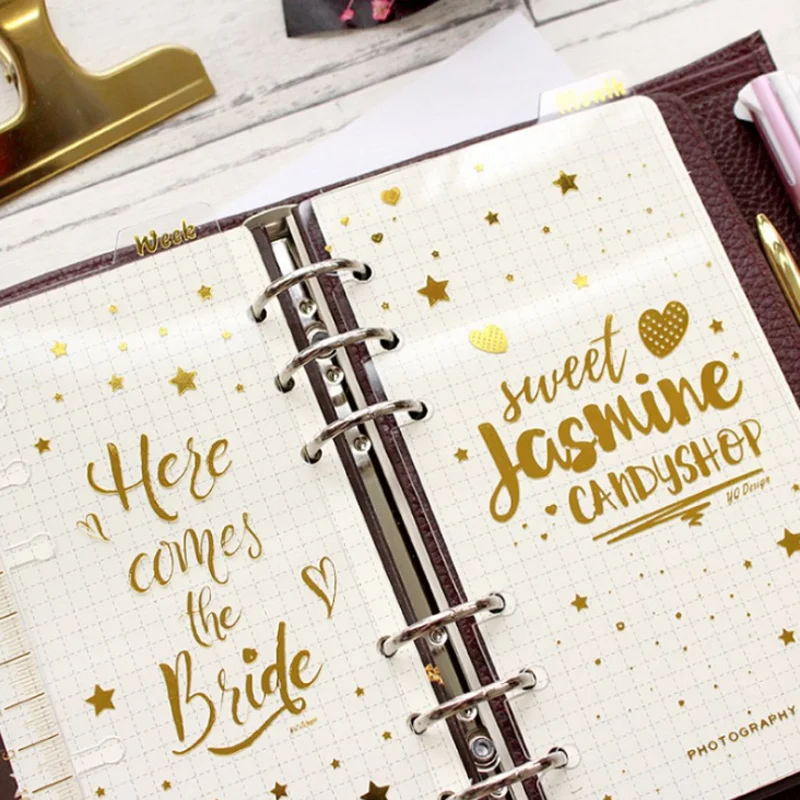 Week
Here
comes
the
Bride
Month
sweet
Jasmine
CANDYSHOP
YQ Design
PHOTOGRAPHY